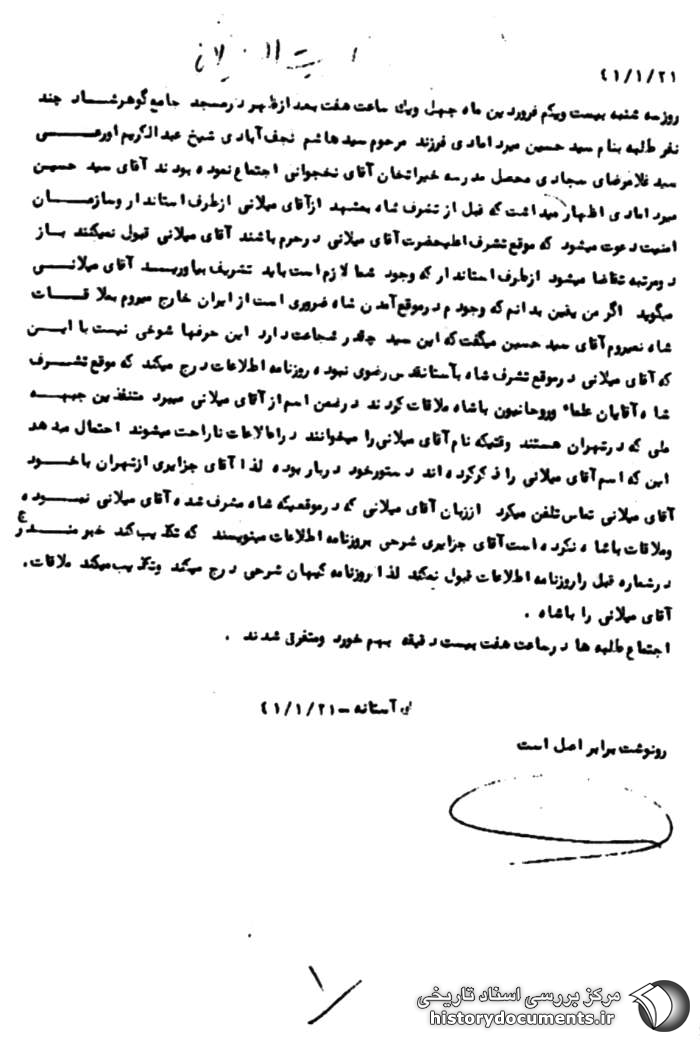 آیت اله میلانی
۴۱/۱/۲۱
روز سه شنبه بیست ویکم فروردین ماه چهل ویک ساعت هفت بعد از ظهر در مسجد جامع گوهرشاد چند
نفر طلبه بنام سید حسین میرد امادی فرزند مرحوم سید هاشم نجف آبادی شیخ عبدالکریم اورعی
سید غلامرضای سجادی محصل مدرسه خیراتخان آقای نخجوانی اجتماع نموده بودند آقای سید حسین
میرد امادی اظهار میداشت که قبل از تشرف شاه بمشهد از آقای میلانی ازطرف استاندار وسازمان
امنیت دعوت میشود که موقع تشرف اعلیحضرت آقای میلانی در حرم باشند آقای میلانی قبول نمیکنند باز
دومرتبه تقاضا میشود ازطرف استاندار که وجود شما لازم است باید تشریف بیاورید آقای میلانی
میگوید اگر من یقین بدانم که وجودم در موقع آمدن شاه ضروری است از ایران خارج میروم بملاقات
شاه نمیروم آقای سید حسین میگفت که این سید چقدر شجاعت دارد این حرفها شوخی نیست با این
که آقای میلانی در موقع تشرف شاه بآستانقدس رضوی نبوده روزنامه اطلاعات درج میکند که موقع تشرف
شاه آقایان علماء وروحانیون باشاه ملاقات کردند در ضمن اسم از آقای میلانی میبرد متنفذین جبهه
ملی که در تهران هستند وقتیکه نام آقای میلانی را میخوانند در اطلاعات ناراحت میشوند احتمال میدهد
این که اسم آقای میلانی را ذکر کرده اند دستور خود دربار بوده لذا آقای جزایری از تهران باخود
آقای میلانی تماس تلفن میگرد از زبان آقای میلانی که در موقعیکه شاه مشرف شده آقای میلانی نبوده
وملاقات باشاه نکرده است آقای جزایری شرحی بروزنامه اطلاعات مینویسند که تکذیب کند خبر مندرج
در شماره قبل را روزنامه اطلاعات قبول نمیکند لذا روزنامه کیهان شرحی درج میکند وتکذیب میکند ملاقات
آقای میلانی را باشاه .
اجتماع طلبه ها در ساعت هفت بیست دقیقه بهم خورد ومتفرق شدند .
آستانه – ۴۱/۱/۲۱
رونوشت برابر اصل است
۱
مرکز بررسی اسناد تاریخی
historydocuments.ir